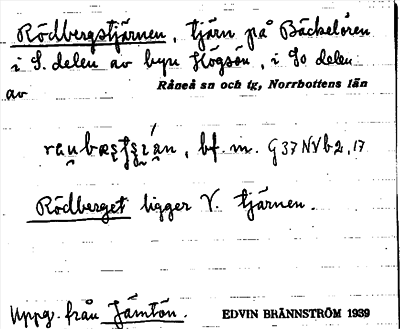 Rödbergstjärnen, tjärn på Bäckelören
i S. delen av byn Högsön, i So delen
av Råneå sn och tg, Norrbottens län
bf. m. G 37 NV b 2, 17
Rödberget ligger V. tjärnen.
Uppg. från Jämtön. EDVIN BRÄNNSTRÖM 1939